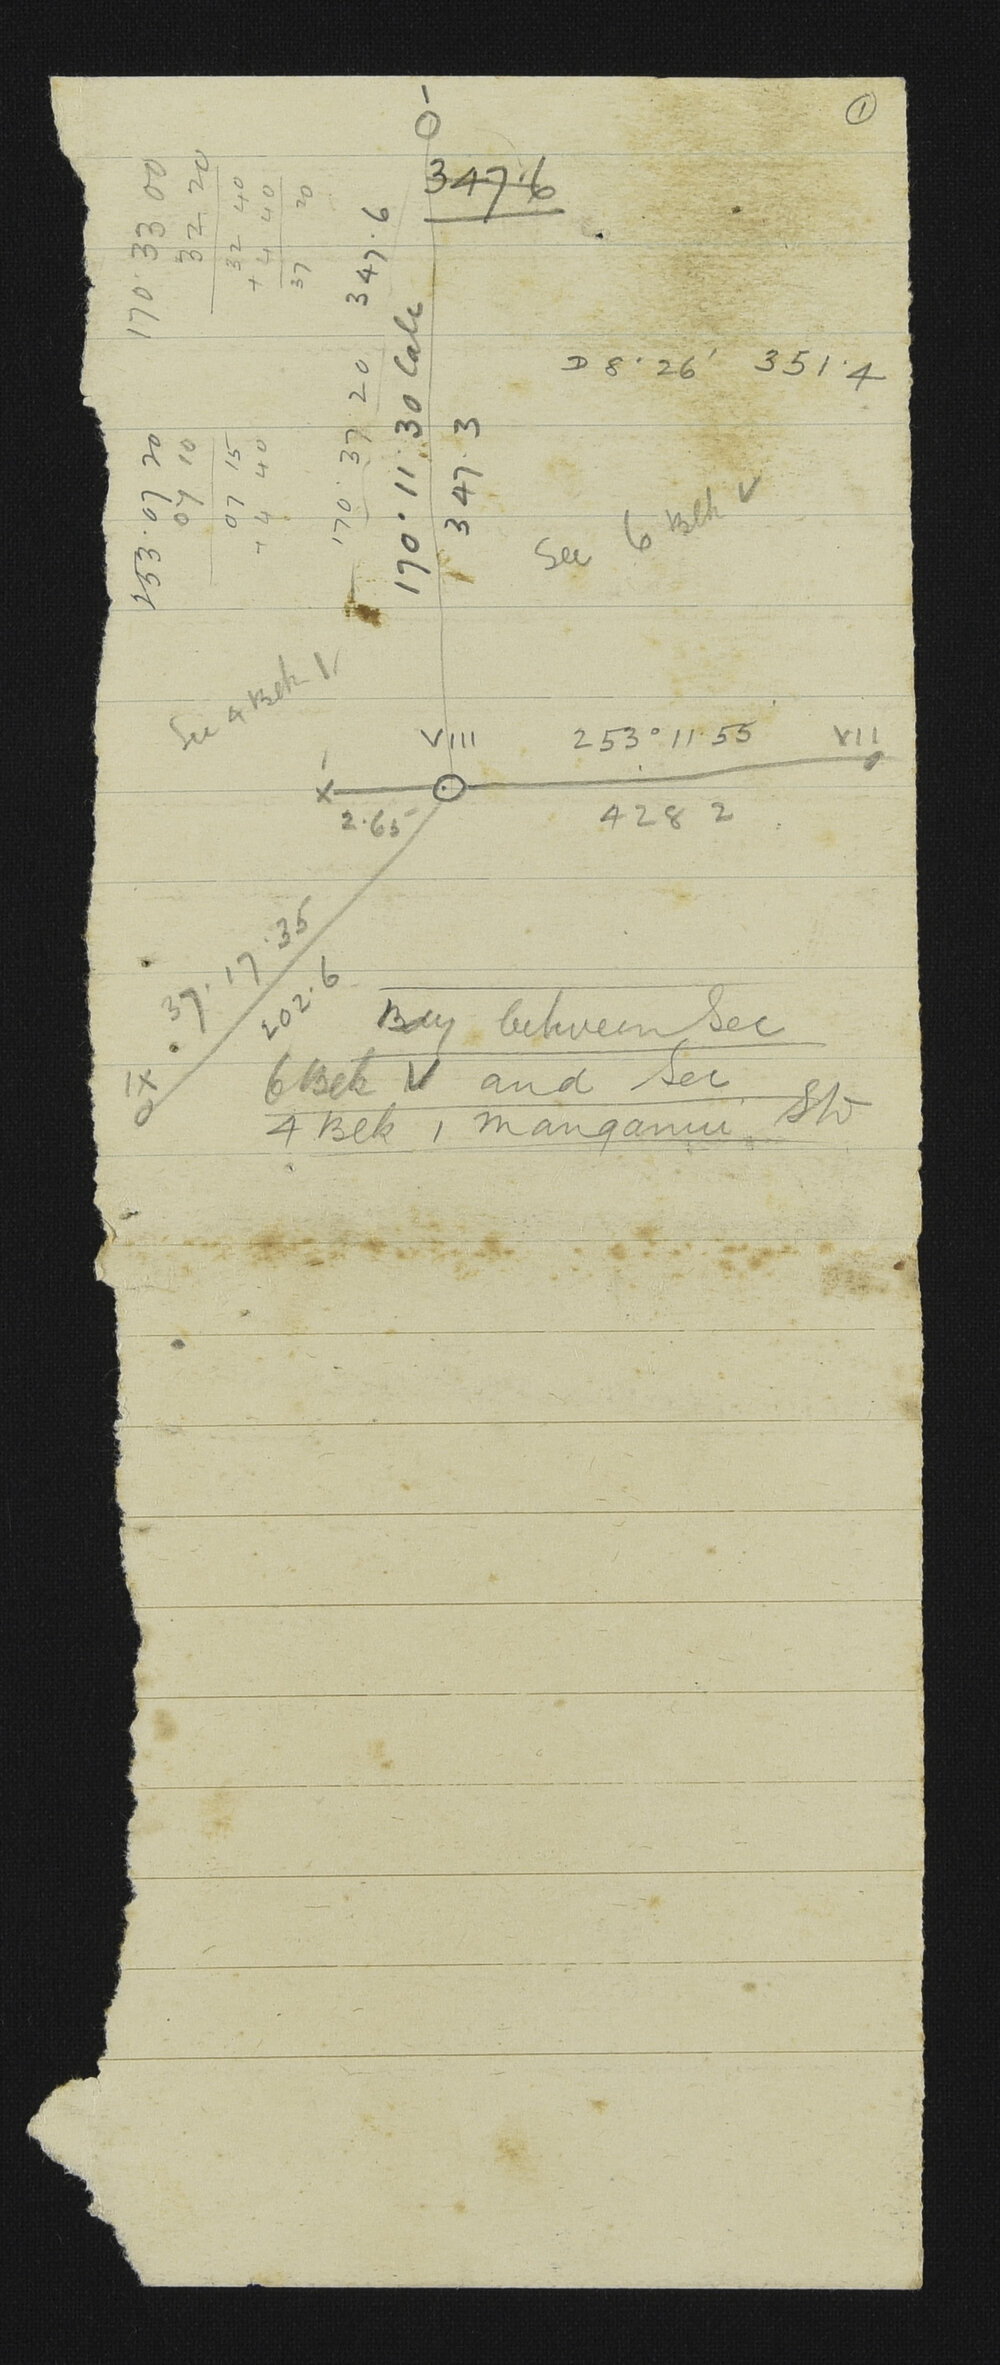 1
347.6
D 8.26' 351.4
170.33 00
32 20
32 40
+ 4 40
37 20
253.07 20
07 10
07 15
+ 4 40
170.37.20 347.6
170°11'30 Calc
347.3
Sec 6 Blk V
Sec 4 Blk 1
VIII 253°11'55 VII
X
2.65 428 2
37.17.35
202.6
IX
Bdy between Sec
6 Blk V and Sec
4 Blk 1 Manganui SD